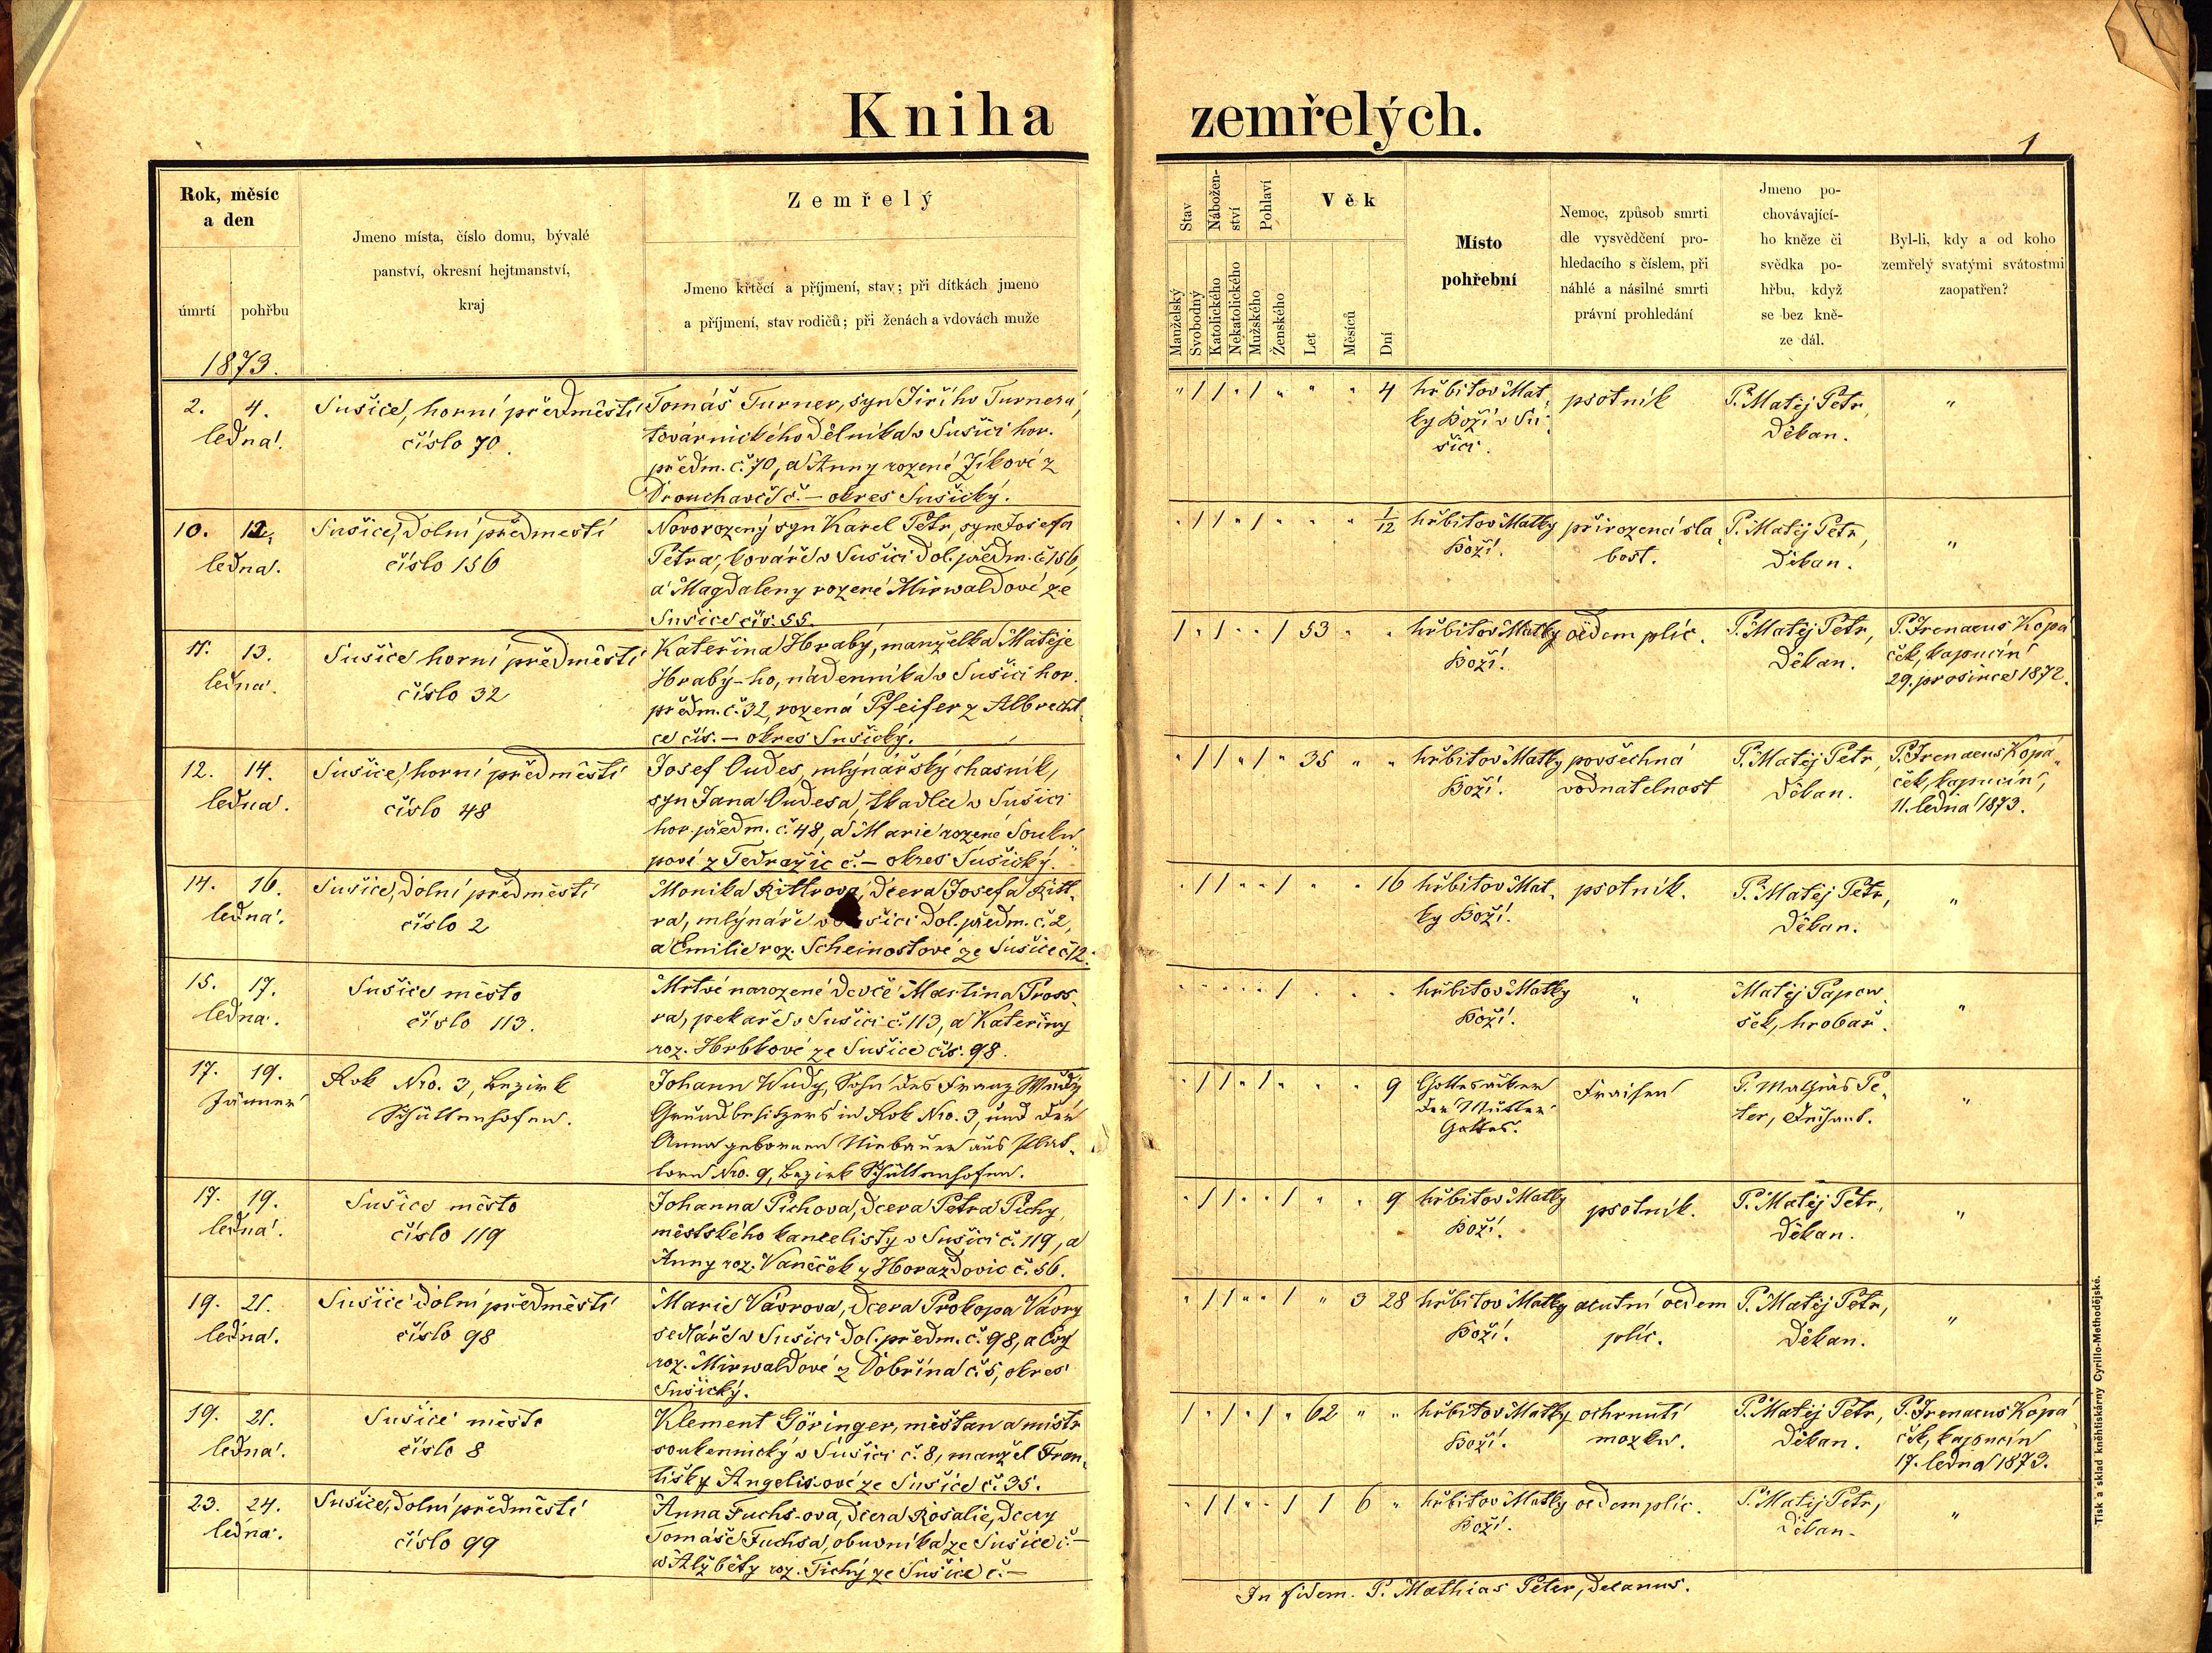 Kniha zemřelých.
1
Rok, měsíc
a den
úmrtí pohřbu
1873.
Jmeno místa, číslo domu, bývalé
panství, okresní hejtmanství,
kraj
Zemřelý
Jmeno křtěcí a příjmení, stav; při dítkách jmeno
a příjmení, stav rodičů; při ženách a vdovách muže
Stav
Manželský
Svobodný
Nábožen-
ství
Katolického
Nekatolického
Pohlaví
Mužského
Ženského
Věk
Let
Měsíců
Dní
Místo
pohřební
Nemoc, způsob smrti
dle vysvědčení pro-
hledacího s číslem, při
náhlé a násilné smrti
právní prohledání
Jmeno po-
chovávající-
ho kněze či
svědka po-
hřbu, když
se bez kně-
ze dál.
Byl-li, kdy a od koho
zemřelý svatými svátostmi
zaopatřen?
2. 4.
ledna.
Sušice, horní předměstí
číslo 70.
Tomáš Turner, syn Jiřího Turnera,
továrnického dělníka v Sušici hor.
předm. č. 70, a Anny rozené Jíkové z
Drouhavče č. – okres Sušický.
" / / " / " " " 4
hřbitov Mat-
ky Boží v Su-
šici.
psotník
P. Matěj Petr,
Děkan.
"
10. 12.
ledna.
Sušice, Dolní předmestí
číslo 156
Novorozený syn Karel Petr, syn Josefa
Petra, kováře v Sušici Dol. předm. č. 156,
a Magdaleny rozené Mirwaldové ze
Sušice čís. 55.
" / / " / " " " 1/12
hřbitov Matky
Boží.
přirozená sla-
bost.
P. Matěj Petr,
Děkan.
"
11. 13.
ledna.
Sušice horní předměstí
číslo 32
Kateřina Hrabý, manželka Matěje
Hrabý-ho, nádenníka v Sušici hor.
předm. č. 32, rozená Pfeifer z Albrecht-
ce čís. – okres Sušický.
/ " / " " / 53 " "
hřbitov Matky
Boží.
oedem plic.
P. Matěj Petr,
Děkan.
P. Irenaeus Kopá-
ček, kapucín
29. prosince 1872.
12. 14.
ledna.
Sušice, horní předměstí
číslo 48
Josef Oudes, mlýnářský chasník,
syn Jana Oudesa, tkadlce v Sušici
hor. předm. č. 48, a Marie rozené Souku-
pové z Tedražic č. – okres Sušický.
" / / " / " 35 " "
hřbitov Matky
Boží.
povšechná
vodnatelnost
P. Matěj Petr,
Děkan.
P. Irenaeus Kopá-
ček, kapucín,
11. ledna 1873.
14. 16.
ledna.
Sušice, Dolní předměstí
číslo 2
Monika Rittrova, dcera Josefa Ritt-
ra, mlýnáře v Sušici Dol. předm. č. 2,
a Emilie roz. Scheinostové ze Sušice č. 12.
" / / " " / " " 16
hřbitov Mat-
ky Boží.
psotník.
P. Matěj Petr,
Děkan.
"
15. 17.
ledna.
Sušice město
číslo 113.
Mrtvě narozené děvče Martina Pross-
ra, pekaře v Sušici č. 113, a Kateřiny
roz. Hrbkové ze Sušice čís. 98.
" " " " " / " " "
hřbitov Matky
Boží.
"
Matěj Papou-
šek, hrobař.
"
17. 19.
Jänner
Rok Nro. 3, Bezirk
Schüttenhofen.
Johann Wudy, Sohn des Franz Wudy
Grundbesitzers in Rok Nro. 3, und der
Anna geborenen Niebauer aus
Nro. 9, Bezirk Schüttenhofen.
" / / " / " " " 9
Gottesacker
der Mutter
Gottes.
Fraisen
P. Mathias Pe-
ter, Dechant.
"
17. 19.
ledna.
Sušice město
číslo 119
Johanna Píchova, dcera Petra Píchy,
městského kancelisty v Sušici č. 119, a
Anny roz. Vaněček z Horažďovic č. 56.
" / / " " / " " 9
hřbitov Matky
Boží.
psotník.
P. Matěj Petr,
Děkan.
"
19. 21.
ledna.
Sušice dolní předměstí
číslo 98
Marie Vávrova, dcera Prokopa Vávry
sedláře v Sušici Dol. předm. č. 98, a Evy
roz. Mirwaldové z Dobřína č. 5, okres
Sušický.
" / / " " / " 3 28
hřbitov Matky
Boží.
acutní oedem
plic.
P. Matěj Petr,
Děkan.
"
19. 21.
ledna.
Sušice město
číslo 8
Klement Göringer, měšťan a mistr
soukennický v Sušici č. 8, manžel Fran-
tišky Angelisové ze Sušice č. 35.
/ " / " / " 62 " "
hřbitov Matky
Boží.
ochrnutí
mozku.
P. Matěj Petr,
Děkan.
P. Irenaeus Kopá-
ček, kapucín
17. ledna 1873.
23. 24.
ledna.
Sušice, Dolní předměstí
číslo 99
Anna Fuchs-ova, dcera Rosalie, dcery
Tomáše Fuchsa, obuvníka ze Sušice č. –
a Alžběty roz. Tichý ze Sušice č. –
" / / " " / 1 6 "
hřbitov Matky
Boží.
oedem plic.
P. Matěj Petr,
Děkan.
"
In fidem. P. Mathias Peter, Decanus.
Tisk a sklad kněhtiskárny Cyrillo-Methodějské.